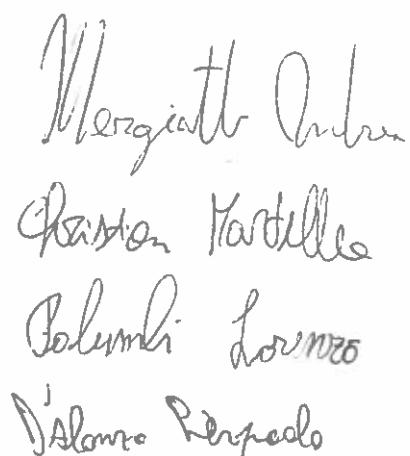 Mergiotti Andrea
Christian Martella
Palumbi Lorenzo
D'Alonzo Pierpaolo